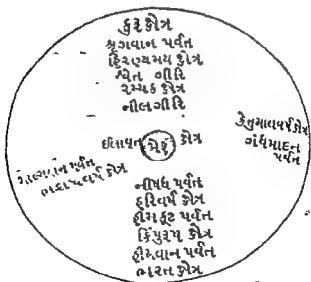 કુરુ ક્ષેત્ર
શ્રૃગવાન પર્વત
હિરણ્યમય ક્ષેત્ર
શ્વેત ગીરિ
રમ્યક ક્ષેત્ર
નીલગીરિ
કેતુમાલવર્ષ ક્ષેત્ર
ગંધમાદન
પર્વત
ઈલાવૃત મેરૂ ક્ષેત્ર
પર્વત
ક્ષેત્ર
નીષધ પર્વત
હરિવર્ષ ક્ષેત્ર
હીમકુટ પર્વત
કિંપુરૂષ ક્ષેત્ર
હીમવાન પર્વત
ભારત ક્ષેત્ર